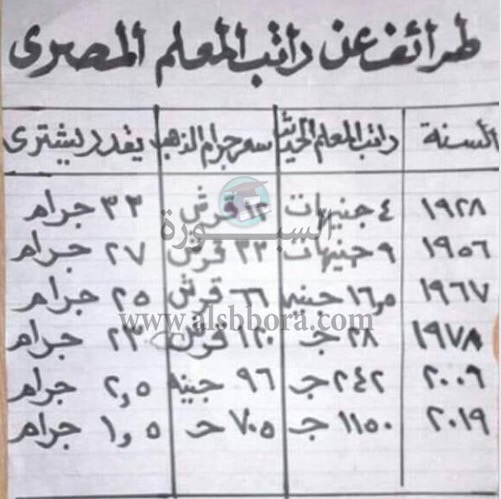 طرائف عن راتب المعلم المصرى
السنة راتب المعلم الحديث سعر جرام الذهب يقدر يشترى
١٩٢٨ ٤ جنيهات ١٢ قرش ٣٣ جرام
١٩٥٦ ٩ جنيهات ٣٣ قرش ٢٧ جرام
١٩٦٧ ١٦,٥ جنيه ٦٦ قرش ٢٥ جرام
١٩٧٨ ٢٨ جـ ١٢٠ قرش ٢٣ جرام
٢٠٠٦ ٢٤٢ جـ ٩٦ جنيه ٢,٥ جرام
٢٠١٩ ١١٥٠ جـ ٧٠٥ جـ ١,٥ جرام
السبورة
www.alsbbora.com